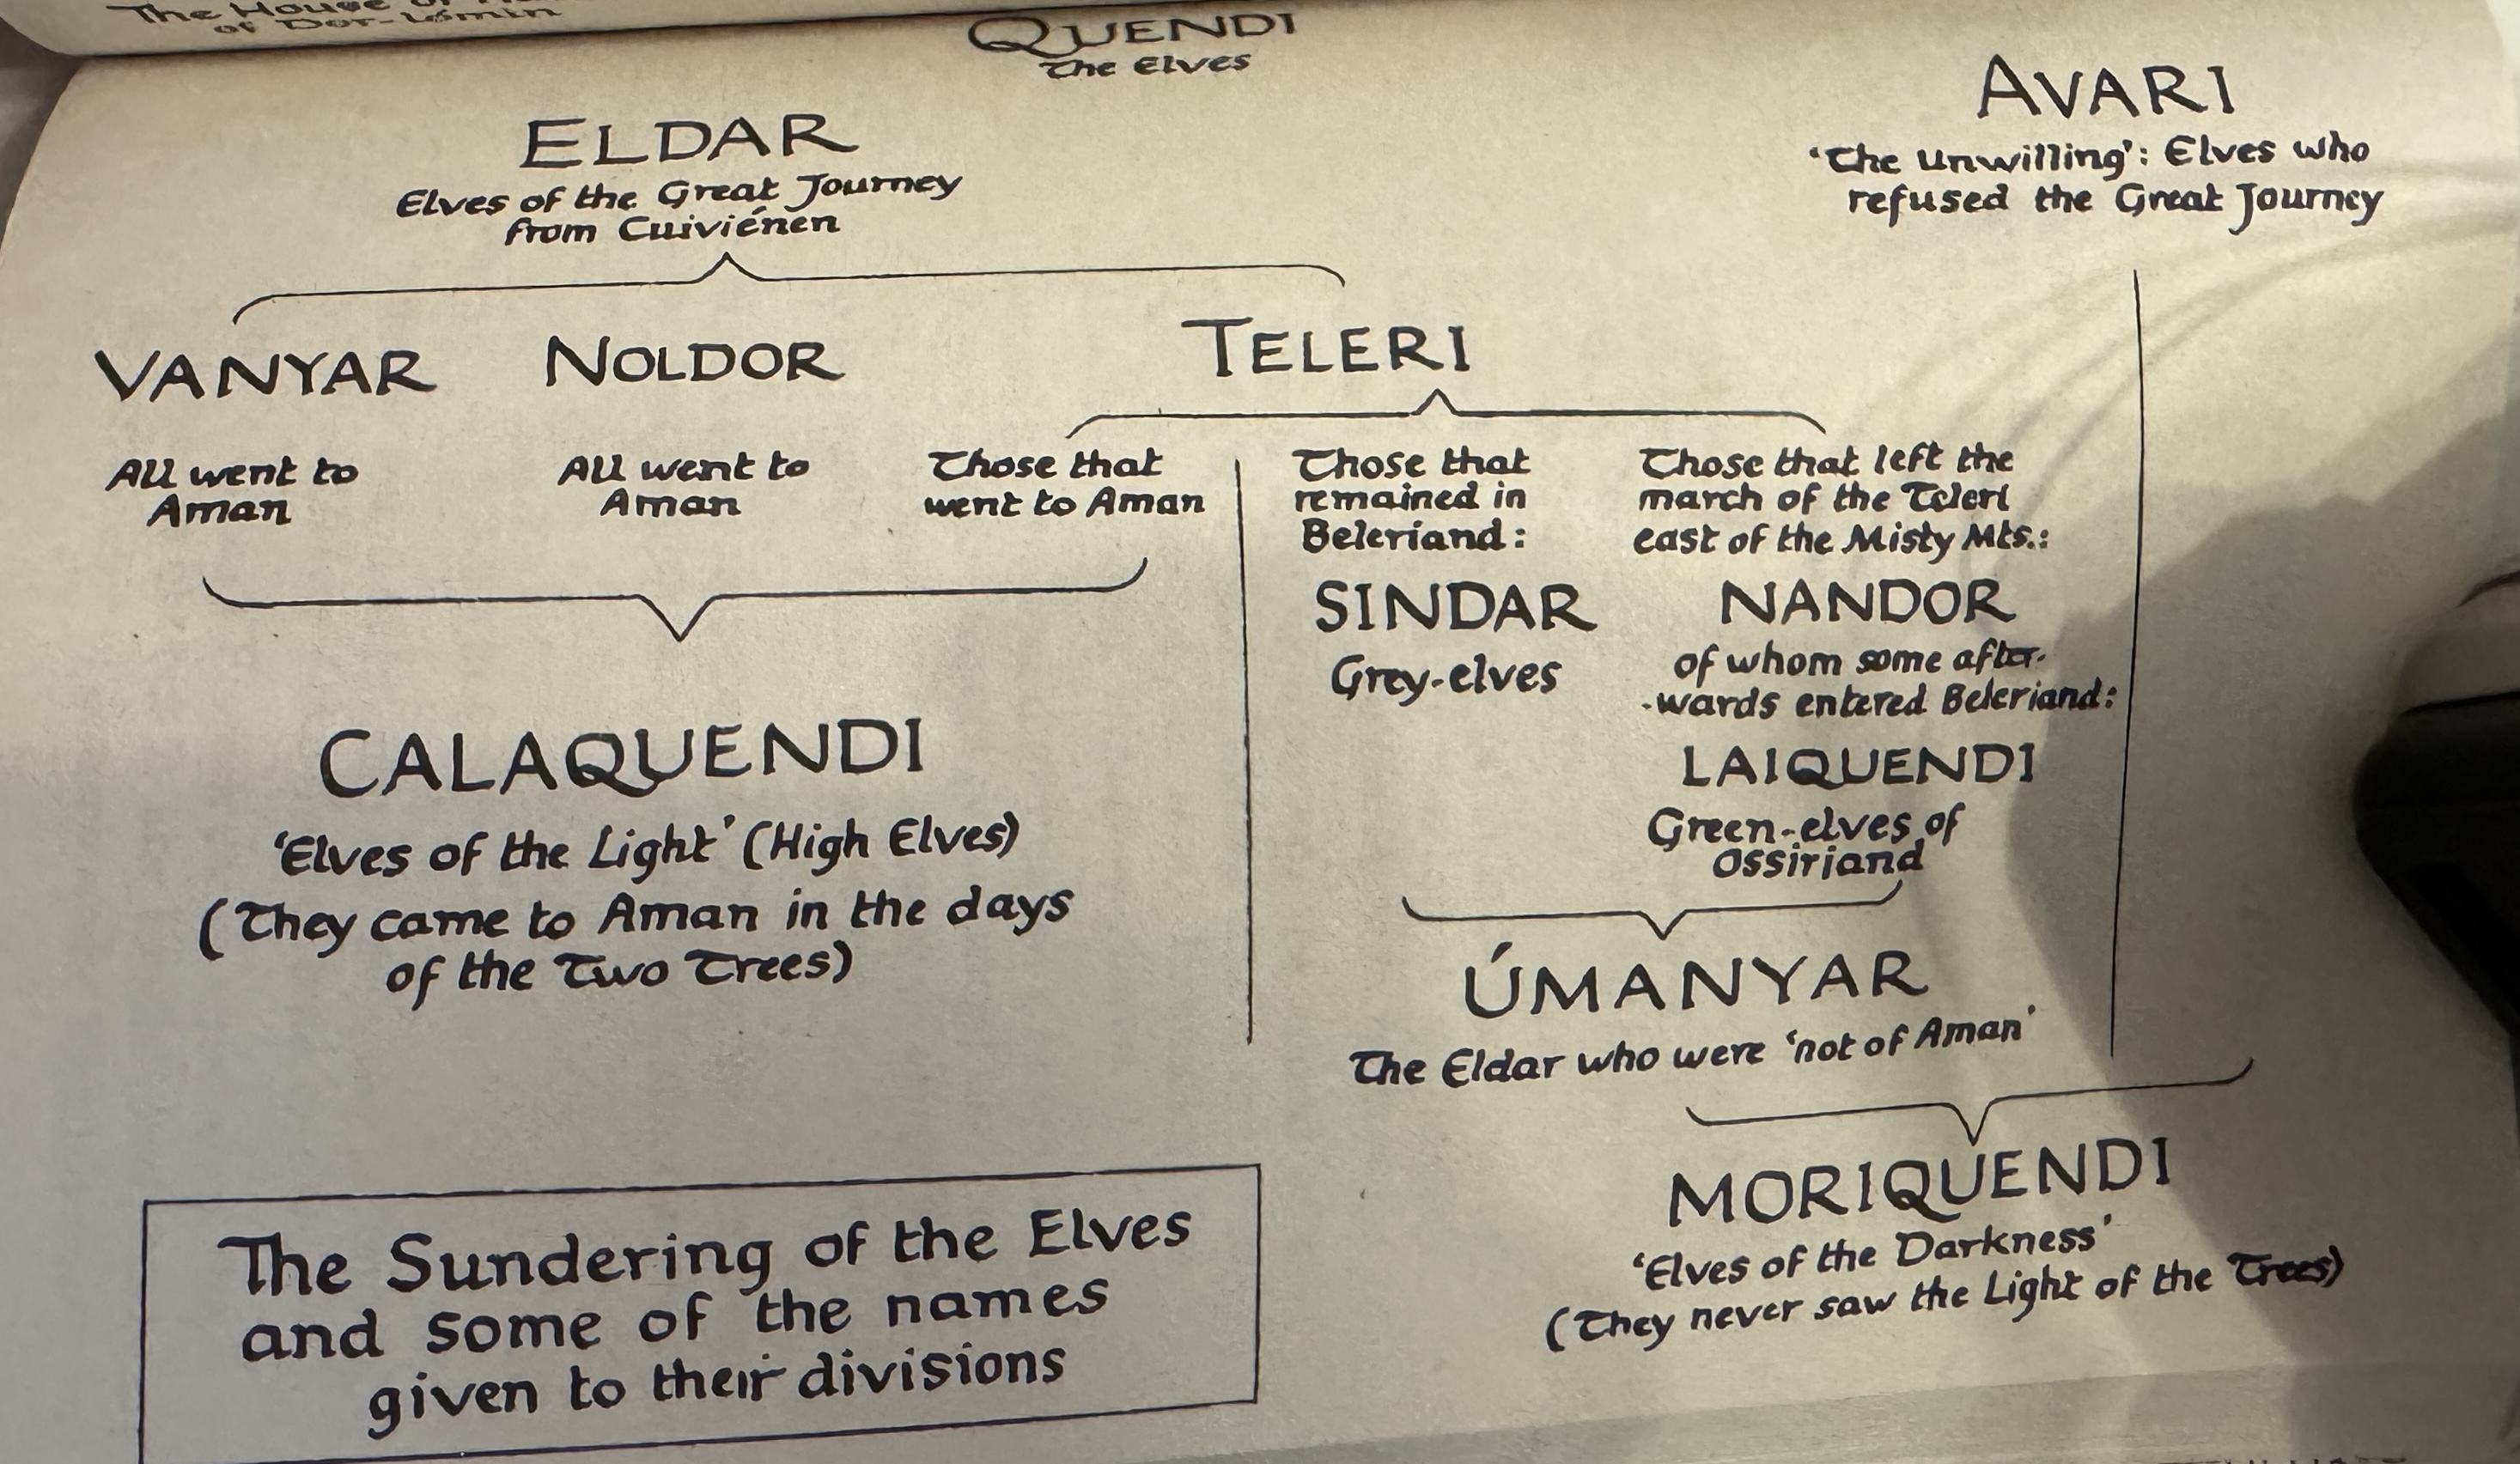 The House of
of Dor-lómin
QUENDI
The Elves
ELDAR
Elves of the Great Journey
from Cuiviénen
AVARI
‘The Unwilling’: Elves who
refused the Great Journey
VANYAR
NOLDOR
TELERI
All went to
Aman
All went to
Aman
Those that
went to Aman
Those that
remained in
Beleriand:
SINDAR
Grey-elves
Those that left the
march of the Teleri
east of the Misty Mts.:
NANDOR
of whom some after-
-wards entered Beleriand:
LAIQUENDI
Green-elves of
Ossiriand
CALAQUENDI
‘Elves of the Light’ (High Elves)
(They came to Aman in the days
of the Two Trees)
ÚMANYAR
The Eldar who were ‘not of Aman’
MORIQUENDI
‘Elves of the Darkness’
(They never saw the Light of the Trees)
The Sundering of the Elves
and some of the names
given to their divisions